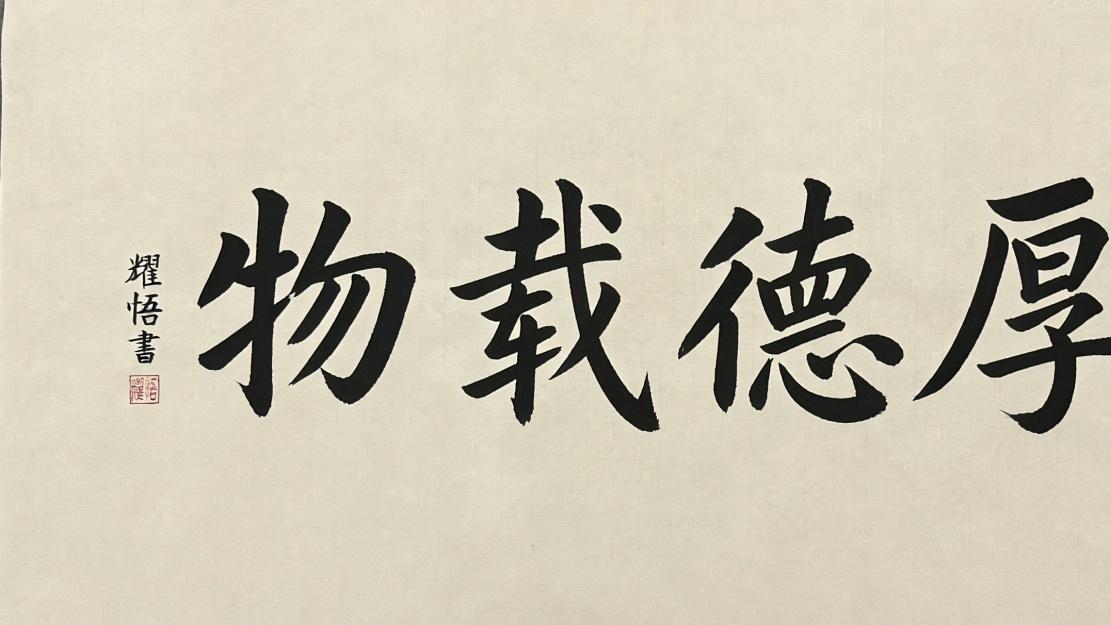 厚德载物
耀悟書